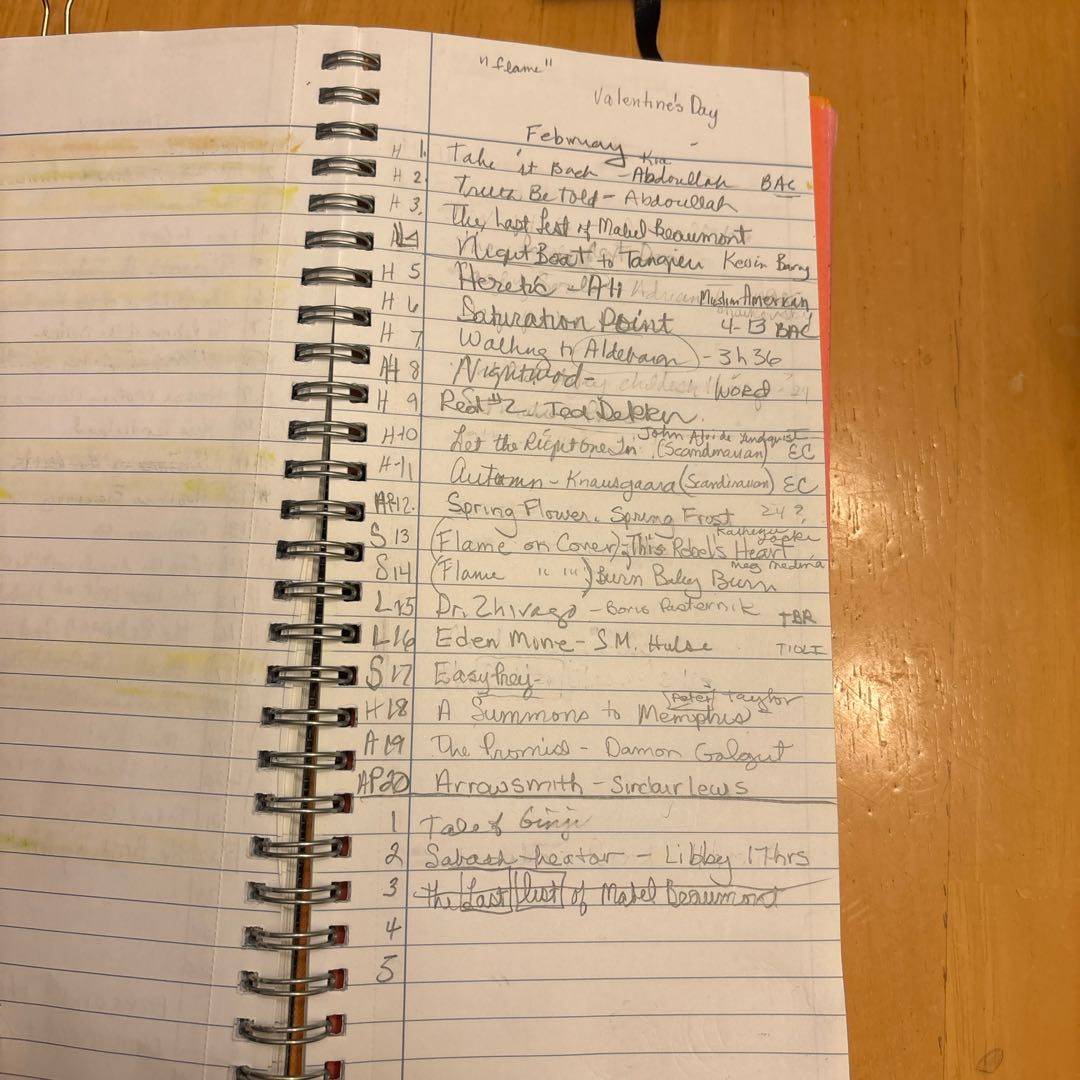 "flame"
Valentine's Day
February
H 1. Take it Back - Kia Abdoullah BAC
H 2. Truth Be Told - Abdoullah
H 3. The Last List of Mabel Beaumont
Night Boat to Tangier Kevin Barry
H 5 Heretic - Ali Muslim American
H 6 Saturation Point 4-13 BAC
H 7 Walking to Aldebaran - 3h36
8 Nightwood - WORD
H 9 Red #2 Ted Dekker.
H-10 Let the Right One In. John Ajvide Lindqvist (Scandinavian) EC
H-11 Autumn - Knausgaard (Scandinavian) EC
12. Spring Flower, Spring Frost 24?
S 13 (Flame on Cover) This Rebel's Heart
S 14 (Flame " " ") Burn Baby Burn Meg Medina
L 15 Dr. Zhivago - Boris Pasternik TBR
L 16 Eden Mine - S.M. Hulse TIOLI
S 17 Easy Prey -
H 18 A Summons to Memphis Peter Taylor
A 19 The Promise - Damon Galgut
AP 20 Arrowsmith - Sinclair Lewis
1 Tale of Genji
2 Sabbath Theator - Libby 17hrs
3 The Last List of Mabel Beaumont
4
5